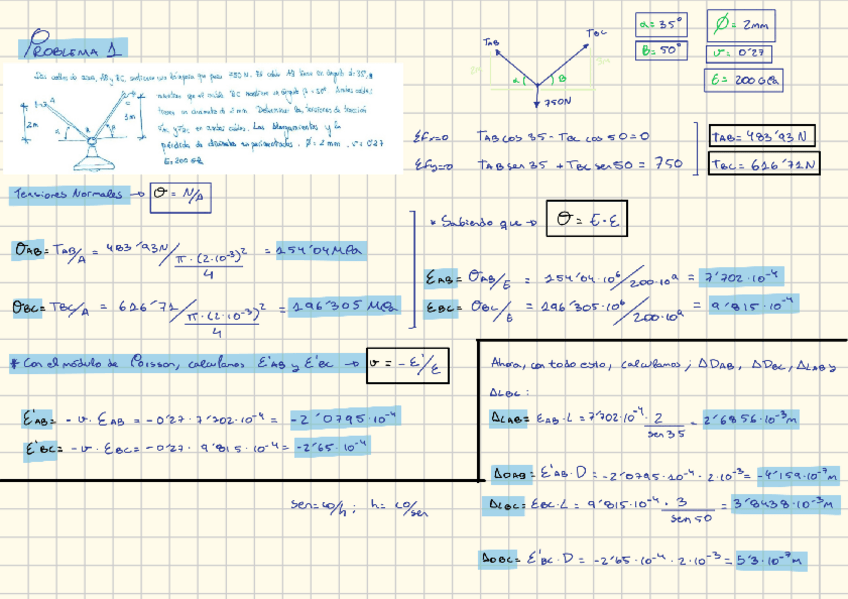 PROBLEMA 1
Dos cables de acero, AB y BC, sostienen una lámpara que pesa 750 N. El cable AB tiene un ángulo α=35°, y
mientras que el cable BC mantiene un ángulo β=50°. Ambos cables
tienen un diámetro de 2 mm. Determinar las tensiones de tracción
en ambos cables. Los alargamientos y la
pérdida de diámetro experimentados. Ø=2mm, ν=0'27
E=200 GPa
A
2m
α
B
β
3m
TAB
TBC
α
β
750N
α=35°
β=50°
Ø=2mm
ν=0'27
E=200GPa
ΣFx=0 TAB cos 35 - TBC cos 50=0
ΣFy=0 TAB sen 35 + TBC sen 50 = 750
TAB=483'93N
TBC=616'71N
Tensiones Normales → σ=N/A
σAB=TAB/A = 483'93N/π·(2·10⁻³)²/4 = 154'04MPa
σBC=TBC/A = 616'71/π·(2·10⁻³)²/4 = 196'305 MPa
* Sabiendo que → σ=E·ε
εAB=σAB/E = 154'04·10⁶/200·10⁹ = 7'702·10⁻⁴
εBC=σBC/E = 196'305·10⁶/200·10⁹ = 9'815·10⁻⁴
* Con el módulo de Poisson, calculamos ε'AB y ε'BC → ν=-ε'/ε
ε'AB=-ν·εAB=-0'27·7'702·10⁻⁴= -2'0795·10⁻⁴
ε'BC=-ν·εBC=-0'27·9'815·10⁻⁴= -2'65·10⁻⁴
sen=co/h; h=co/sen
Ahora, con todo esto, calculamos; ΔDAB, ΔDBC, ΔLAB y
ΔLBC:
ΔLAB=εAB·L=7'702·10⁻⁴·2/sen35=2'6856·10⁻³m
ΔDAB=ε'AB·D=-2'0795·10⁻⁴·2·10⁻³=-4'159·10⁻⁷m
ΔLBC=εBC·L=9'815·10⁻⁴·3/sen50=3'8438·10⁻³m
ΔDBC=ε'BC·D=-2'65·10⁻⁴·2·10⁻³=5'3·10⁻⁷m